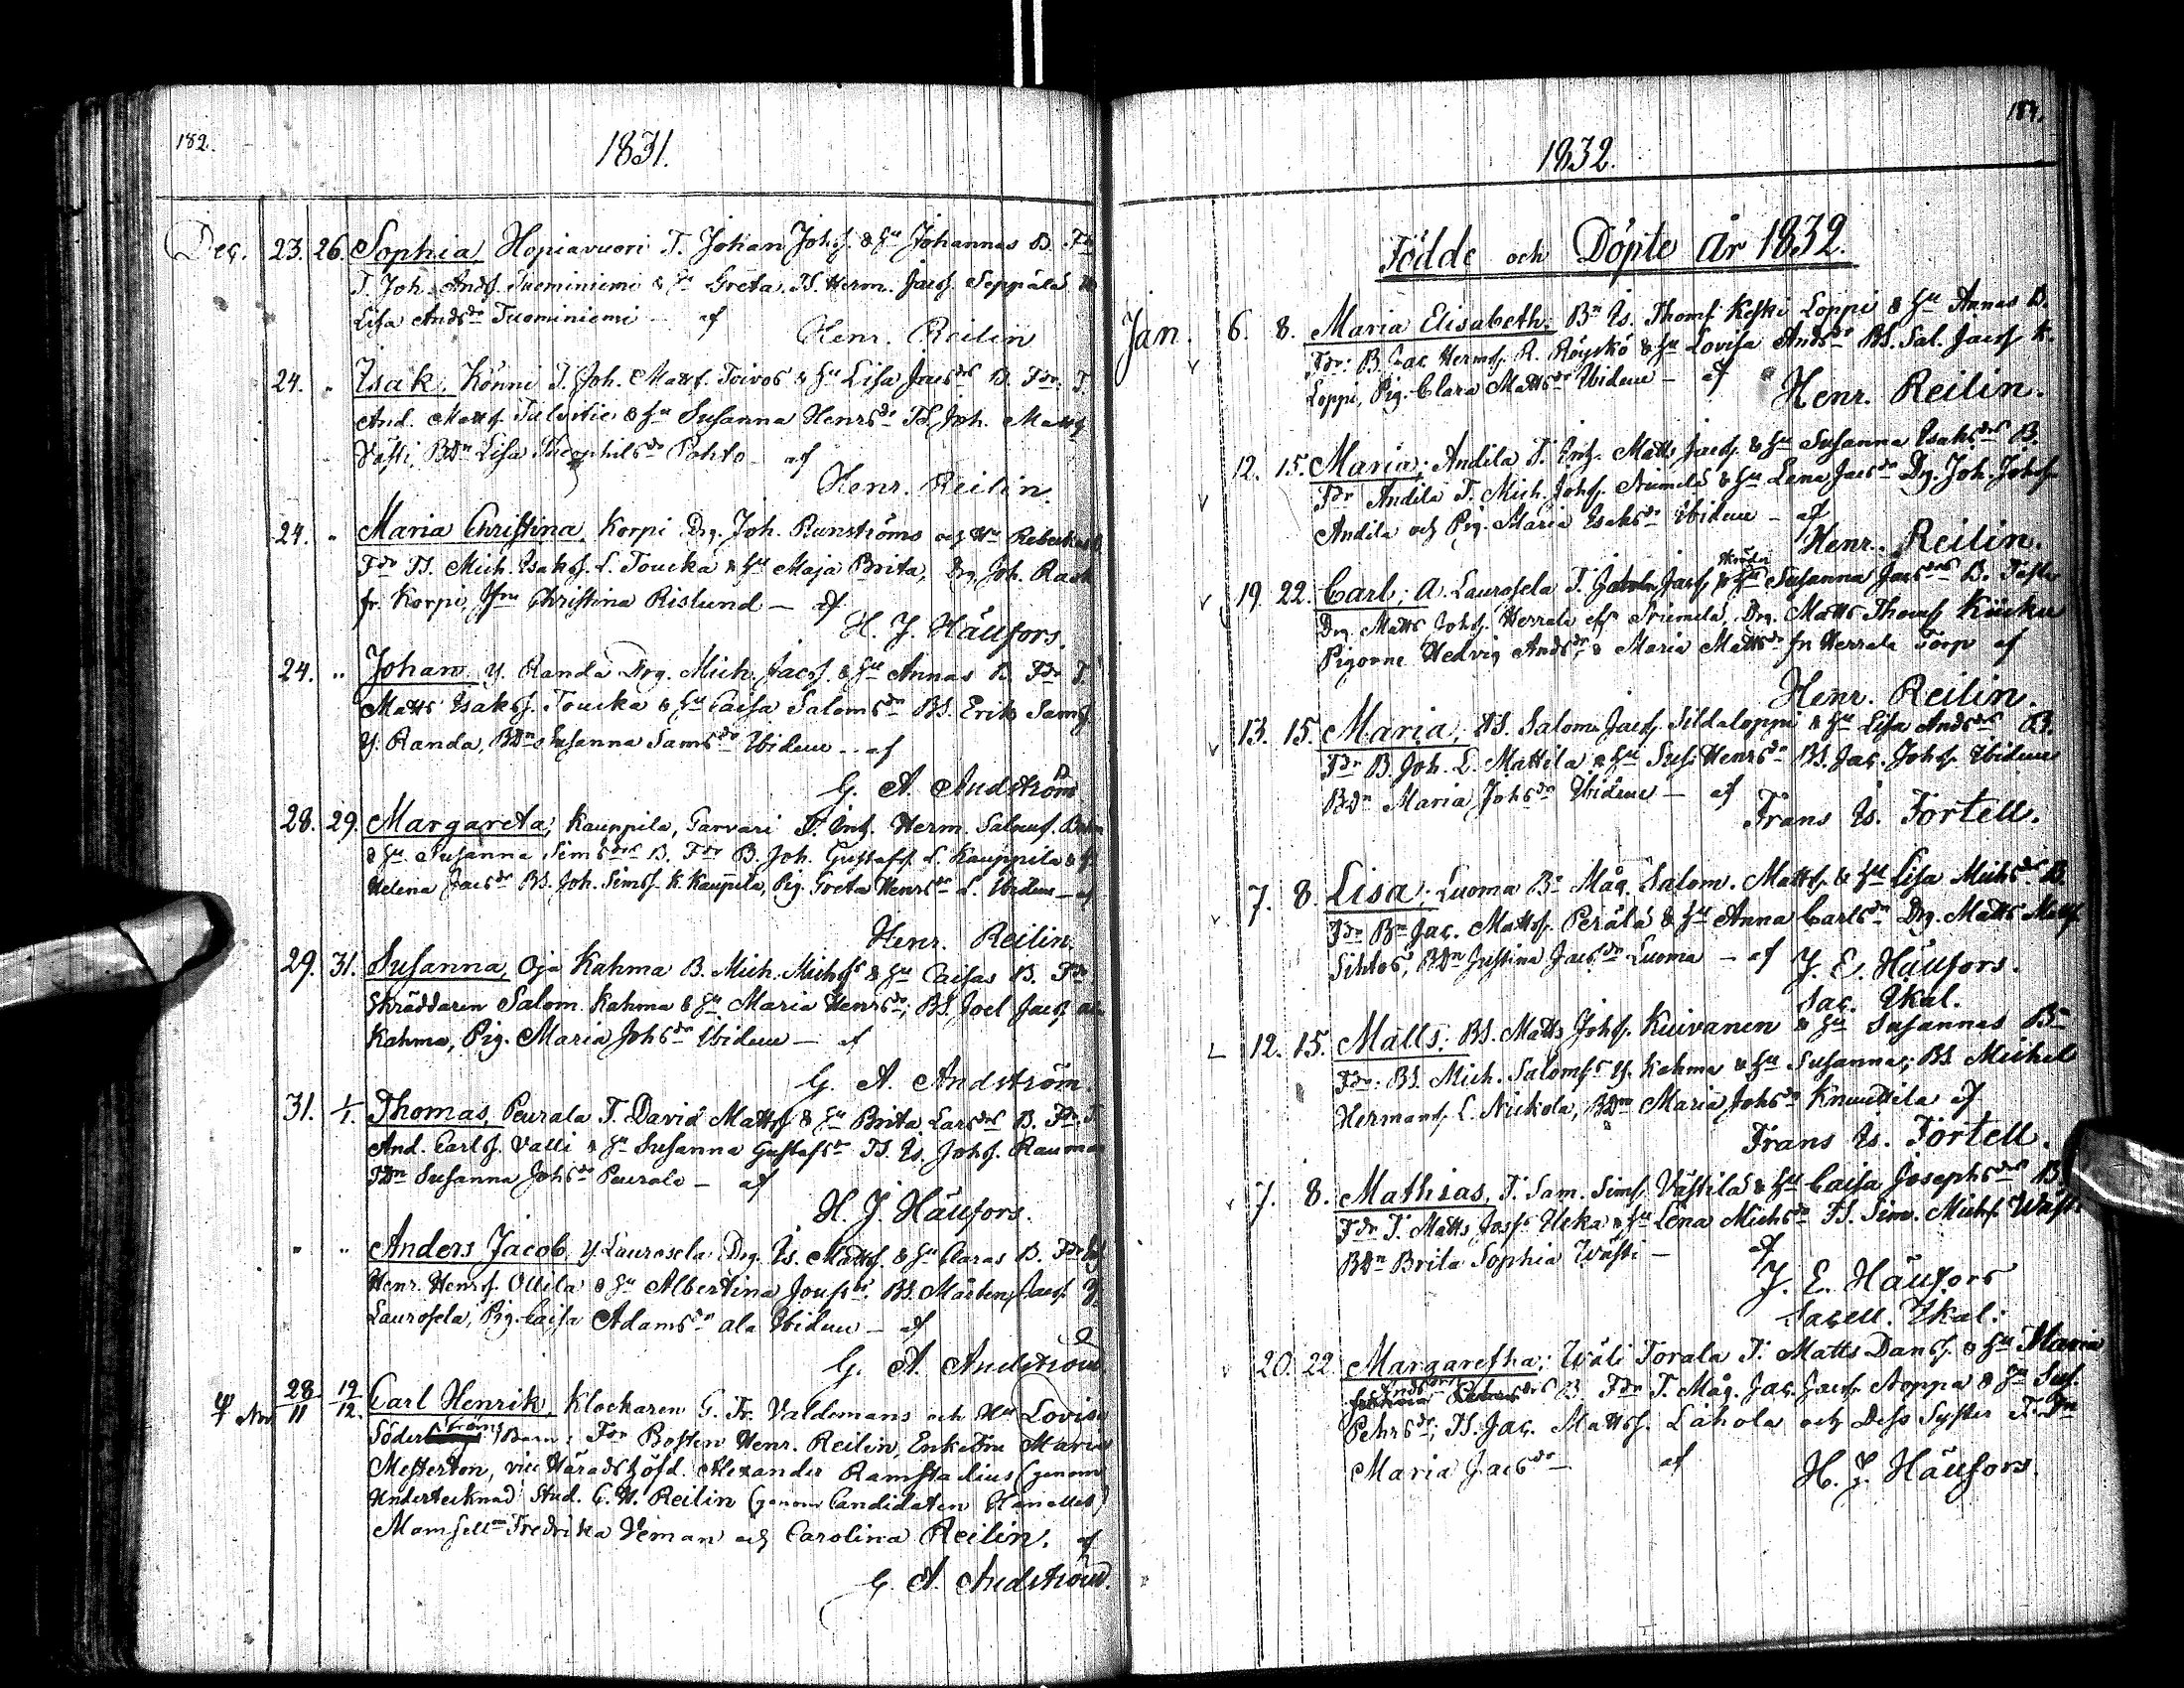 182.
1831.
Dec. 23. 26. Sophia, Hopiavuori T. Johan Johss. & Hu Johannas B. Fdr
T. Joh. Andss. Tuominiemi & Hu Greta. TS. Herm. Jacss. Seppälä
Lisa Andsdr Tuominiemi af
Henr. Reilin
24. " Isak, Könni T. Joh. Mattss. Toivos & Hu Lisa Jacsdrs B. Fdr. T.
And. Mattss. Tulvitie & Hu Susanna Henrsdr TS. Joh. Mattss
Västi, BDn Lisa Theophilsdr Pohto - af
Henr. Reilin.
24. " Maria Christina, Korpi Drg. Joh. Runströms och Hu Rebeckas
Fdr TS. Mich. Isakss. L. Toucka & Hu Maja Brita, Drg Joh. Rask
fr. Korpi, Jfru Christina Rislund - af
H. J. Häufors.
24. " Johan, Y. Randa Drg. Mich. Jacss. & Hu Annas B. Fdr T.
Matts Isakss. Toucka & Hu Caisa Salomsdr BS. Erik Samss.
Y. Randa, BDn Susanna Samsdr Ibidem - af
G. A. Andström
28. 29. Margareta, Kauppila, Tarvari T. Inh. Herm. Salomss.
& Hu Susanna Simsdrs B. Fdr B. Joh. Gustafss. L. Kauppila & H.
Helena Jacsdr BS. Joh. Simss. K. Kauppila, Pig. Greta Henrsdr L. Ibidem - af
Henr. Reilin.
29. 31. Susanna, Oja Kahma B. Mich. Michss & Hu Caisas B. Fdr
Skräddaren Salom. Kahma & Hu Maria Henrsdr, BS. Joel Jacss. ala
Kahma, Pig. Maria Johsdr Ibidem - af
G. A. Andström.
31. 1/1. Thomas, Peurala T. David Mattss & Hu Brita Larsdrs B. Fdr. T.
And. Carlss. Valli & Hu Susanna Gustafsdr TS. Is. Johss. Rauma
TDn Susanna Johsdr Peurala - af
H. J. Häufors.
" " Anders Jacob, Y. Laurosela Drg. Is. Mattss. & Hu Claras B. Fdr
Henr. Henrss. Ollila & Hu Albertina Josephsdr. BS. Mårten Jacss. Y.
Laurosela, Pig. Caisa Adamsdr ala Ibidem - af
G. A. Andström
Nov. 28/11 19/12. Carl Henrik, Klockaren G. Fr. Valdemans och Hu Lovisa
Söderströms Barn; Fdr Prosten Henr. Reilin, Enkefru Maria
Mesterton, vice Häradshöfd. Alexander Ramstadius (genom
Undertecknad) Stud. C. H. Reilin (genom Candidaten Hanelles)
Mamsellerne Fredrika Veman och Carolina Reilin. af
G. A. Andström.
1832.
Födde och Döpte år 1832.
Jan. 6. 8. Maria Elisabeth; Bn Is. Thomss Keski Loppi & Hu Annas B.
Fdr: B. Jac Hermss. R. Röyskö & Hu Lovisa Andsdr BS. Sal. Jacss K.
Loppi, Pig. Clara Mattsdr Ibidem - af
Henr. Reilin.
12. 15. Maria; Andila T. Inh. Matts Jacss & Hu Susanna Isaksdrs B.
Fdr Andila T. Mich. Johss. Niemelä & Hu Lena Jacsdr Drg. Joh. Johss.
Andila och Pig. Maria Isaksdr Ibidem - af
Henr. Reilin.
19. 22. Carl; A. Laurosela T. Jacss & Hu Susanna Jacsdrs B. Fdr
Drg. Matts Johss. Herrala Niemelä, Drg. Matts Thomss Kiicku
Pigorne Hedvig Andsdr, & Maria Mattsdr fr Herrala Torp af
Henr. Reilin.
13. 15. Maria, BS. Salom. Jacss. Sildaloppi & Hu Lisa Andsdrs B.
Fdr B. Joh. L. Mattila & Hu Sus. Henrsdr BS. Jac. Johss. Ibidem
BDn Maria Johsdr Ibidem - af
Frans Is. Fortell.
7. 8. Lisa; Luoma Bn Måg. Salom. Mattss. & Hu Lisa Michsdrs B.
Fdr Bn Jac. Mattss. Perälä & Hu Anna Carlsdr Drg. Matts Mattss
Sihtos, BDn Justina Jacsdr Luoma - af J. E. Häufors.
Sac. Ukal.
12. 15. Matts; BS. Matts Johss. Kuivanen & Hu Susannas Bn
Fdr: BS. Mich. Salomss Y. Kahma & Hu Susanna; BS Michel
Hermanss. L. Nickola, BDn Maria Johsdr Knuuttila af
Frans Is. Fortell.
7. 8. Mathias, T. Sam. Simss. Västilä & Hu Caisa Josephsdrs B.
Fdr T. Matts Joss. Ucka & Hu Lena Michsdr TS. Sim. Michss. Wästi
BDn Brita Sophia Wästi - af
J. E. Häufors
Sacell. Ukal:
20. 22. Margaretha; Wäli Torala T. Matts Danss. & Hu Maria
Andsdrs B. Fdr T. Måg. Jac. Jacss. Noppa & Hu Sus.
Pehrsdr; TS. Jac. Mattss. Lahola och Dess Syster T. Dn
Maria Jacsdr - af
H. J. Häufors.